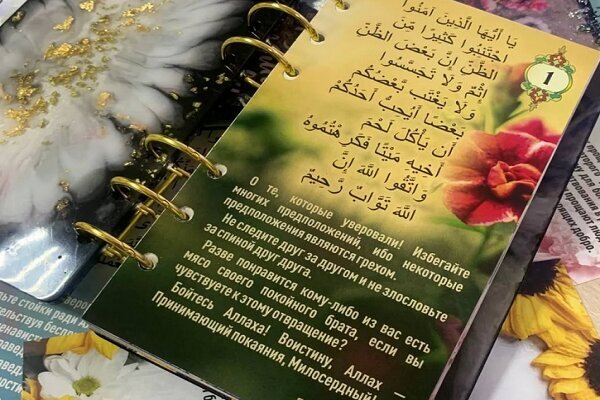 يَا أَيُّهَا الَّذِينَ آمَنُوا
اجْتَنِبُوا كَثِيرًا مِّنَ
الظَّنِّ إِنَّ بَعْضَ الظَّنِّ
إِثْمٌ وَلَا تَجَسَّسُوا
وَلَا يَغْتَب بَّعْضُكُم
بَعْضًا أَيُحِبُّ أَحَدُكُمْ
أَن يَأْكُلَ لَحْمَ
أَخِيهِ مَيْتًا فَكَرِهْتُمُوهُ
وَاتَّقُوا اللَّهَ إِنَّ
اللَّهَ تَوَّابٌ رَّحِيمٌ
1
О те, которые уверовали! Избегайте
многих предположений, ибо некоторые
предположения являются грехом.
Не следите друг за другом и не злословьте
за спиной друг друга.
Разве понравится кому-либо из вас есть
мясо своего покойного брата, если вы
чувствуете к этому отвращение?
Бойтесь Аллаха! Воистину, Аллах —
Принимающий покаяния, Милосердный!
стойки ради